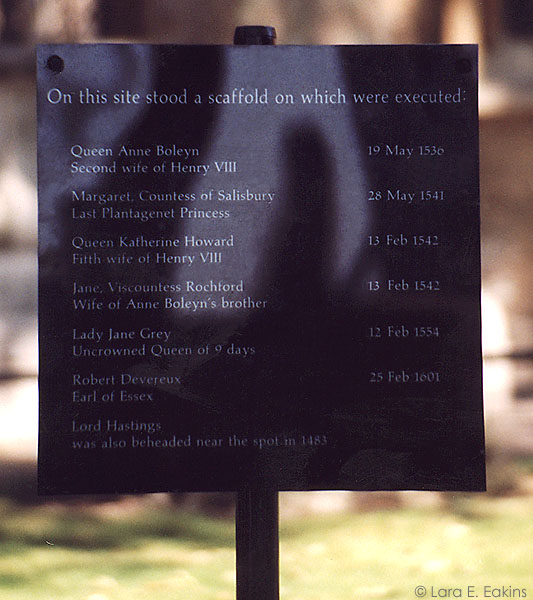 On this site stood a scaffold on which were executed:
Queen Anne Boleyn 19 May 1536
Second wife of Henry VIII
Margaret, Countess of Salisbury 28 May 1541
Last Plantagenet Princess
Queen Katherine Howard 13 Feb 1542
Fifth wife of Henry VIII
Jane, Viscountess Rochford 13 Feb 1542
Wife of Anne Boleyn's brother
Lady Jane Grey 12 Feb 1554
Uncrowned Queen of 9 days
Robert Devereux 25 Feb 1601
Earl of Essex
Lord Hastings
was also beheaded near the spot in 1483
© Lara E. Eakins